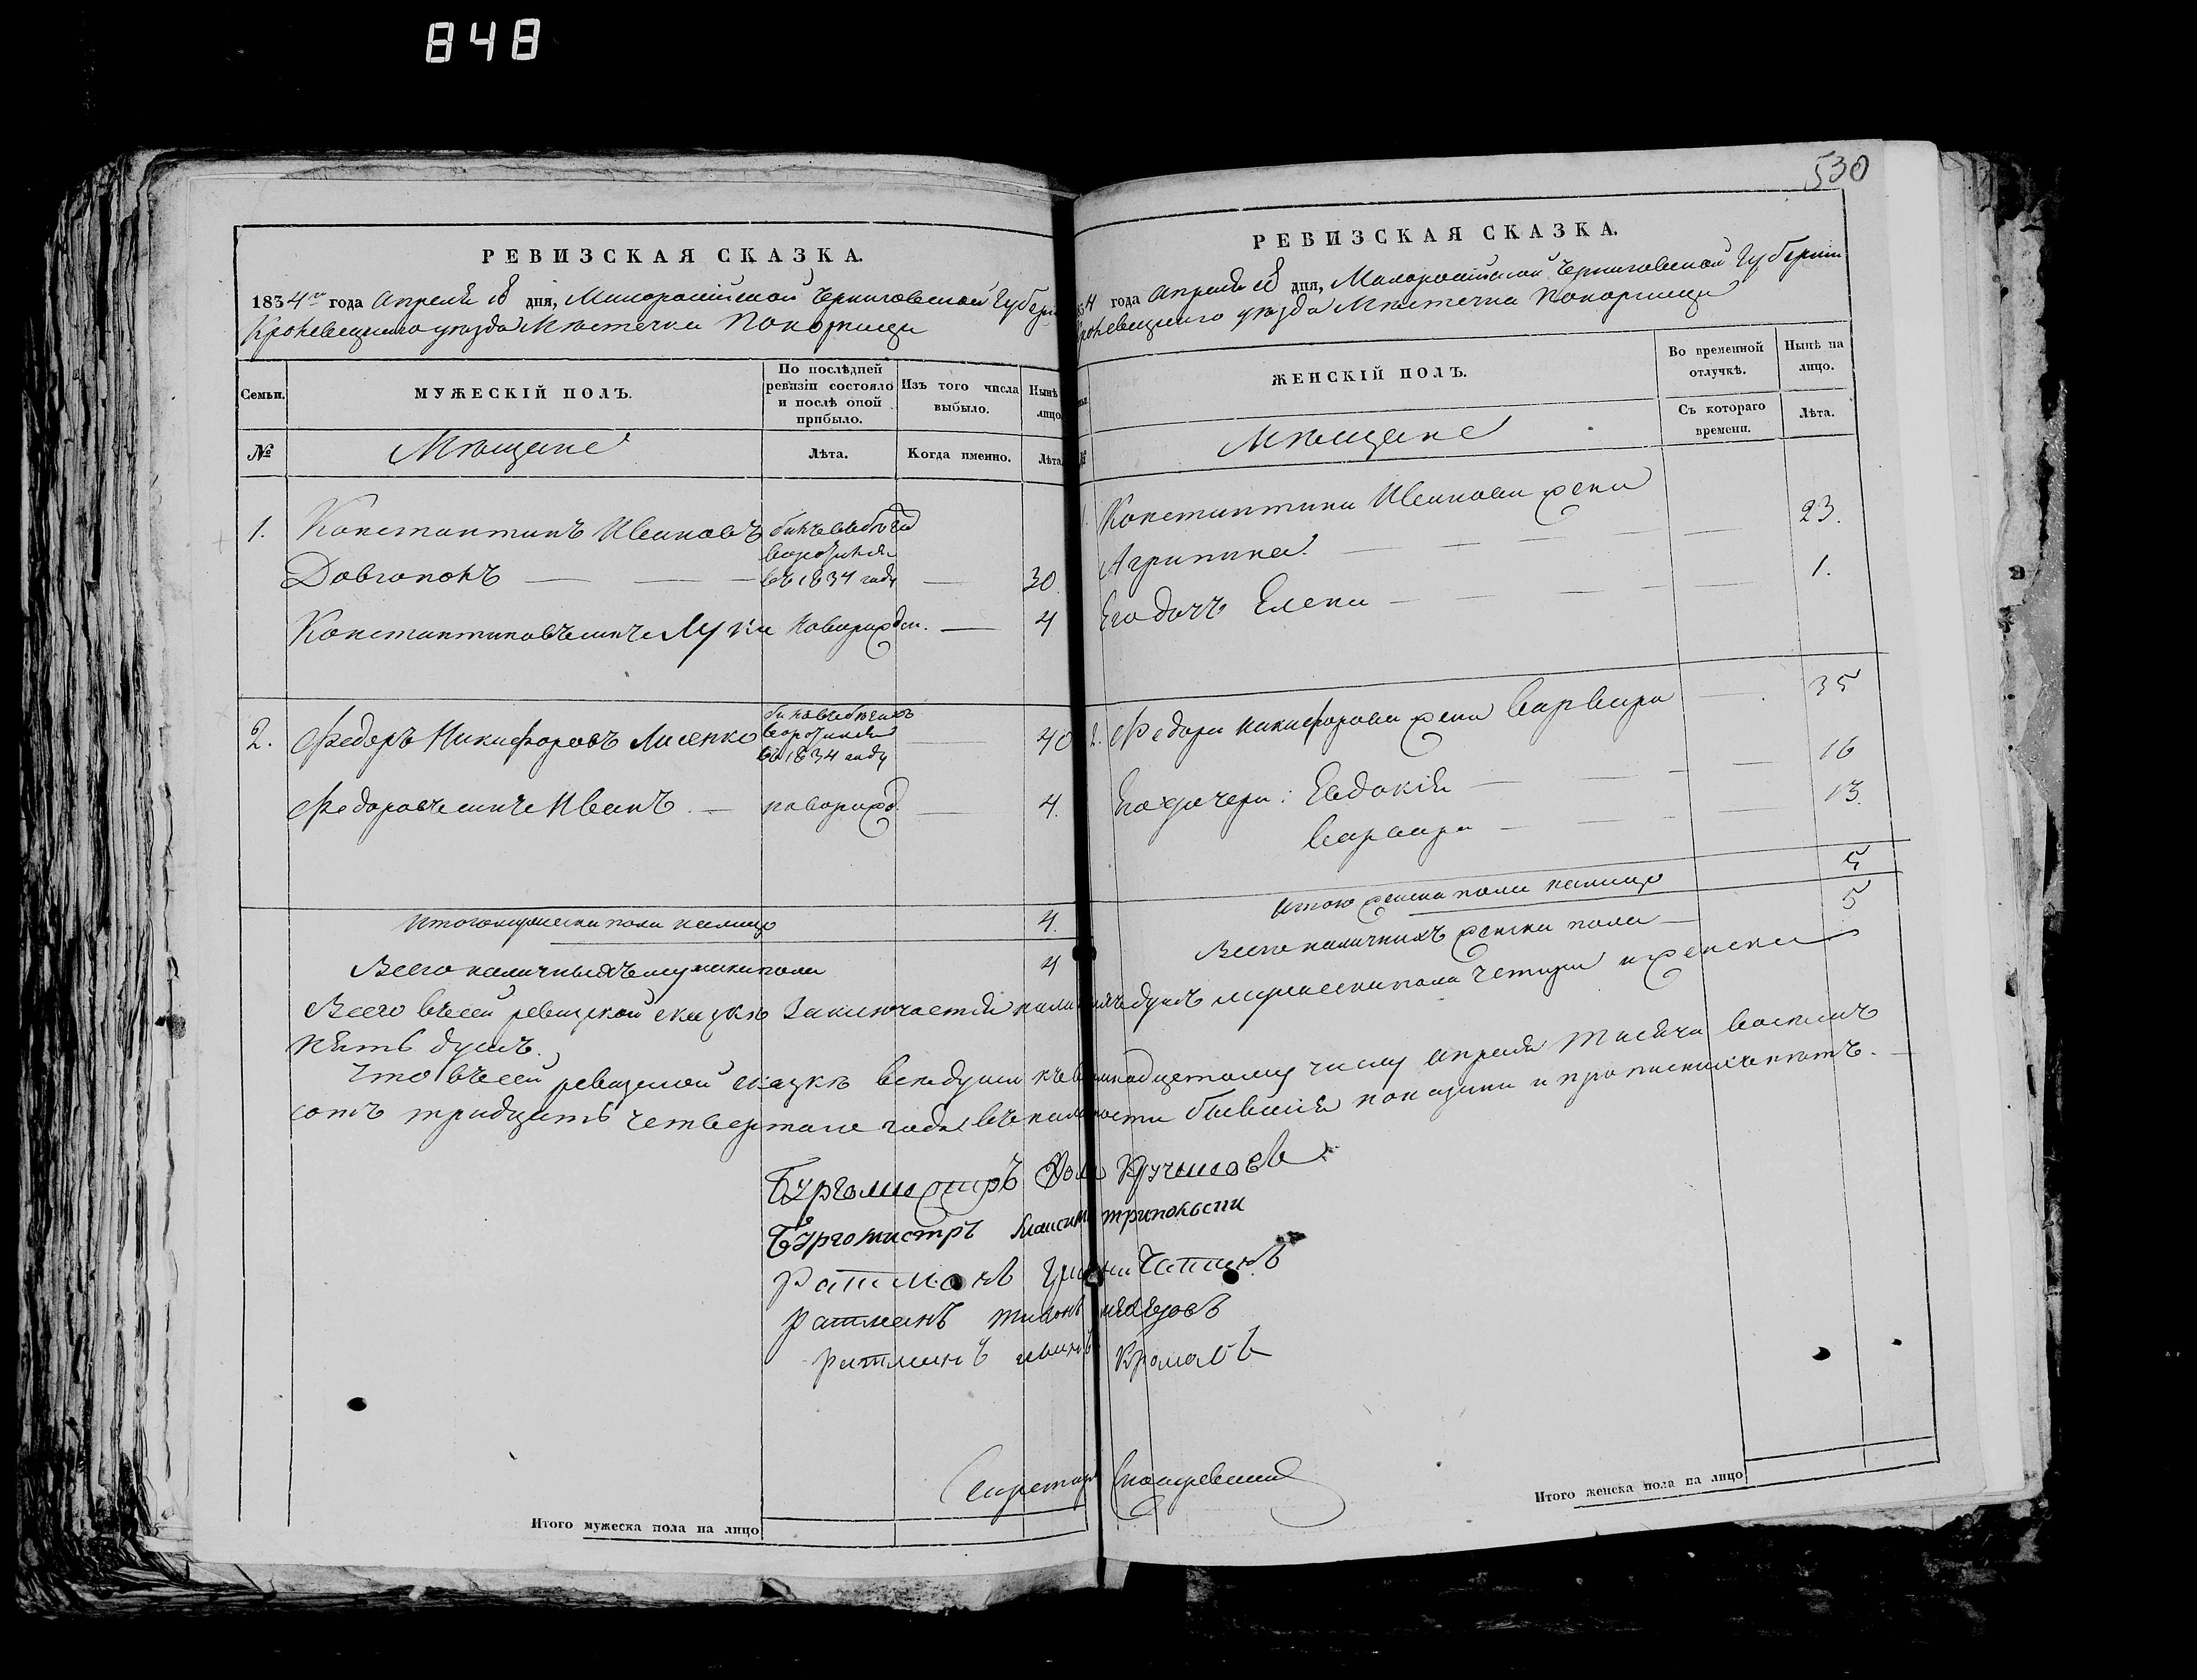 848
530
РЕВИЗСКАЯ СКАЗКА.
1834го года Апреля 18 дня, Малоросiйской Черниговской Губернiи
Кролевецкаго уезда Местечка Понорница
Семьи.
МУЖЕСКIЙ ПОЛЪ.
По послѣдней ревизiи состояло и послѣ оной прибыло.
Изъ того числа выбыло.
Нынѣ лицо
№
Мѣщане
Лѣта.
Когда именно.
Лѣта
1. Константинъ Ивановъ
Довгопокъ
въ 1834 году
30
Константиновъ сынъ Лука новорожден. 4
2. Федоръ Никифоровъ Лисенко
въ 1834 году
40
Федоровъ сынъ Иванъ новорожд. 4.
Итого мужеска пола налицо 4.
Всего наличныхъ мужеска пола 4
РЕВИЗСКАЯ СКАЗКА.
34 года Апреля 18 дня, Малоросiйской Черниговской Губернiи
Кролевецкаго уезда Местечка Понорница
ЖЕНСКIЙ ПОЛЪ.
Во временной отлучкѣ.
Нынѣ на лицо.
№
Мѣщане
Съ котораго времени.
Лѣта.
Константина Иванова жена
Агрипина 23.
Его дочь Елена 1.
2. Федора Никифорова жена Варвара 35
Его дочери: Евдокiя 16
Варвара 13.
Итого женска пола налицо 5
Всего наличныхъ женска пола 5
Всего въ сей ревизской сказке заключается наличныхъ душъ мужеска пола четыри и женска
пять душъ.
Что въ сей ревизской сказке все души къ восмнадцатому числу Апреля тисяча восемь
сотъ тридцать четвертаго года въ наличности бывшiя показани и прописныхъ нетъ.
Бургомистръ Кучмовъ
Бургомистръ Максимъ
Ратманъ
Ратманъ Тихонъ
Ратманъ Иванъ
Секретарь
Итого мужеска пола на лицо
Итого женска пола на лицо